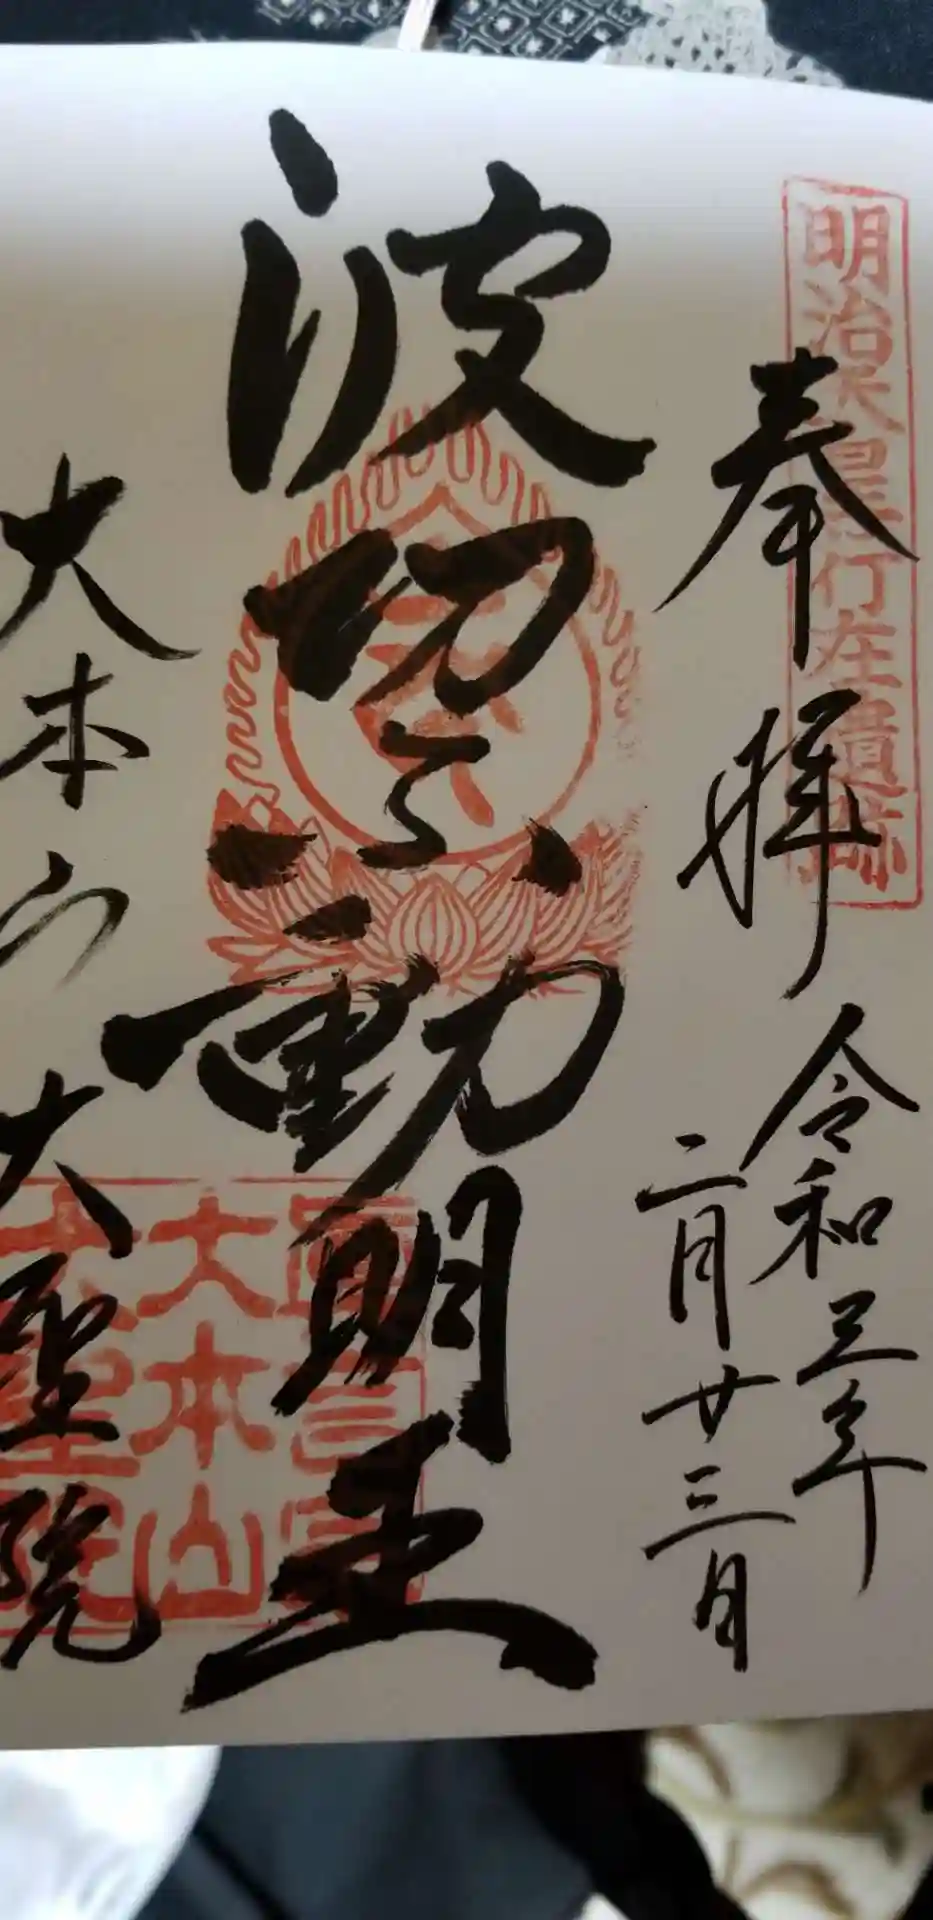 明治天皇行在遺跡
奉拝
令和三年
二月廿三日
波切不動明王
大本山
大聖院
真言宗
大本山
大聖院